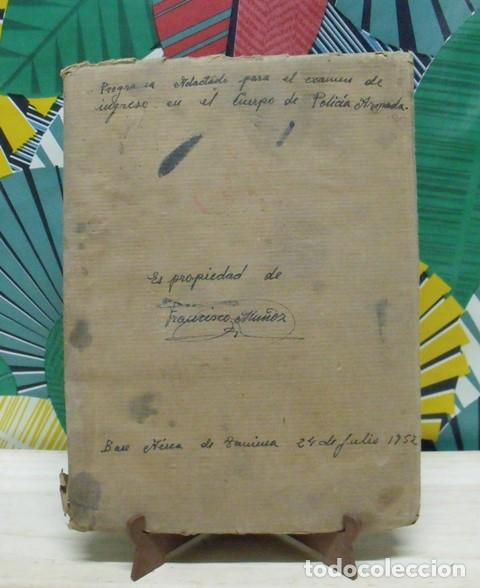 Programa Adactado para el examen de
ingreso en el Cuerpo de Policía Armada.
Es propiedad de
Francisco Muñoz
Base Aérea de 24 de Julio 1952
todocoleccion.net